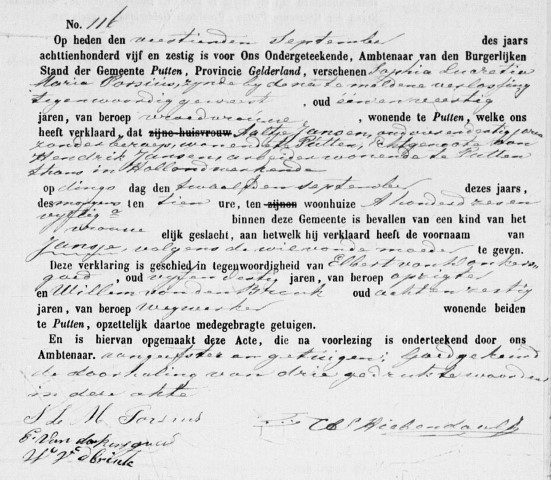 No. 116
Op heden den veertienden September des jaars
achttienhonderd vijf en zestig is voor Ons Ondergeteekende, Ambtenaar van den Burgerlijken
Stand der Gemeente Putten, Provincie Gelderland, verschenen Sophia Lucretia
Maria Dorsius, zynde by de na te melden verlossing
tegenwoordig geweest , oud eenenveertig
jaren, van beroep vroedvrouw , wonende te Putten, welke ons
heeft verklaard, dat zijne huisvrouw Aaltje Jansen, oud jaren
zonder beroep, wonende te Putten, Echtgenoote van
Hendrik Jansen, arbeider wonende te Putten
thans in Holland werkende
op dings dag den twaalfden September dezes jaars,
des morgens ten tien ure, ten zijnen woonhuize A honderd zes en
vyftig a binnen deze Gemeente is bevallen van een kind van het
vrouwe elijk geslacht, aan hetwelk hij verklaard heeft de voornaam van
Jansje, volgens de wil van de moeder te geven.
Deze verklaring is geschied in tegenwoordigheid van Elbert van Donkers-
goed , oud jaren, van beroep opzigter
en Willem van den Brink oud achtenzestig
jaren, van beroep wegwerker wonende beiden
te Putten, opzettelijk daartoe medegebragte getuigen.
En is hiervan opgemaakt deze Acte, die na voorlezing is onderteekend door ons
Ambtenaar. aangeefster en getuigen; Goedgekeurd
de doorhaling van drie gedrukte woorden
in deze akte
S. L. M. Dorsius
E. Van donkersgoed
W. V. d Brink